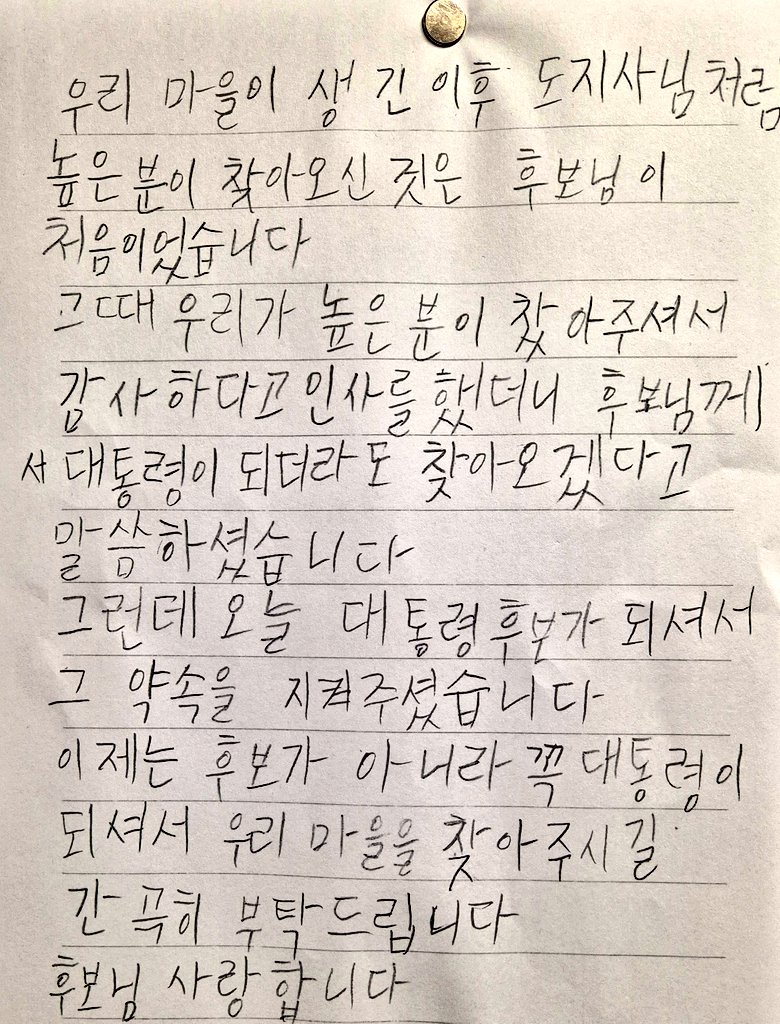 우리 마을이 생긴 이후 도지사님처럼
높은분이 찾아오신 것은 후보님이
처음이었습니다
그때 우리가 높은 분이 찾아주셔서
감사하다고 인사를 했더니 후보님께
서 대통령이 되더라도 찾아오겠다고
말씀하셨습니다
그런데 오늘 대통령후보가 되셔서
그 약속을 지켜주셨습니다
이제는 후보가 아니라 꼭 대통령이
되셔서 우리 마을을 찾아주시길
간곡히 부탁드립니다
후보님 사랑합니다